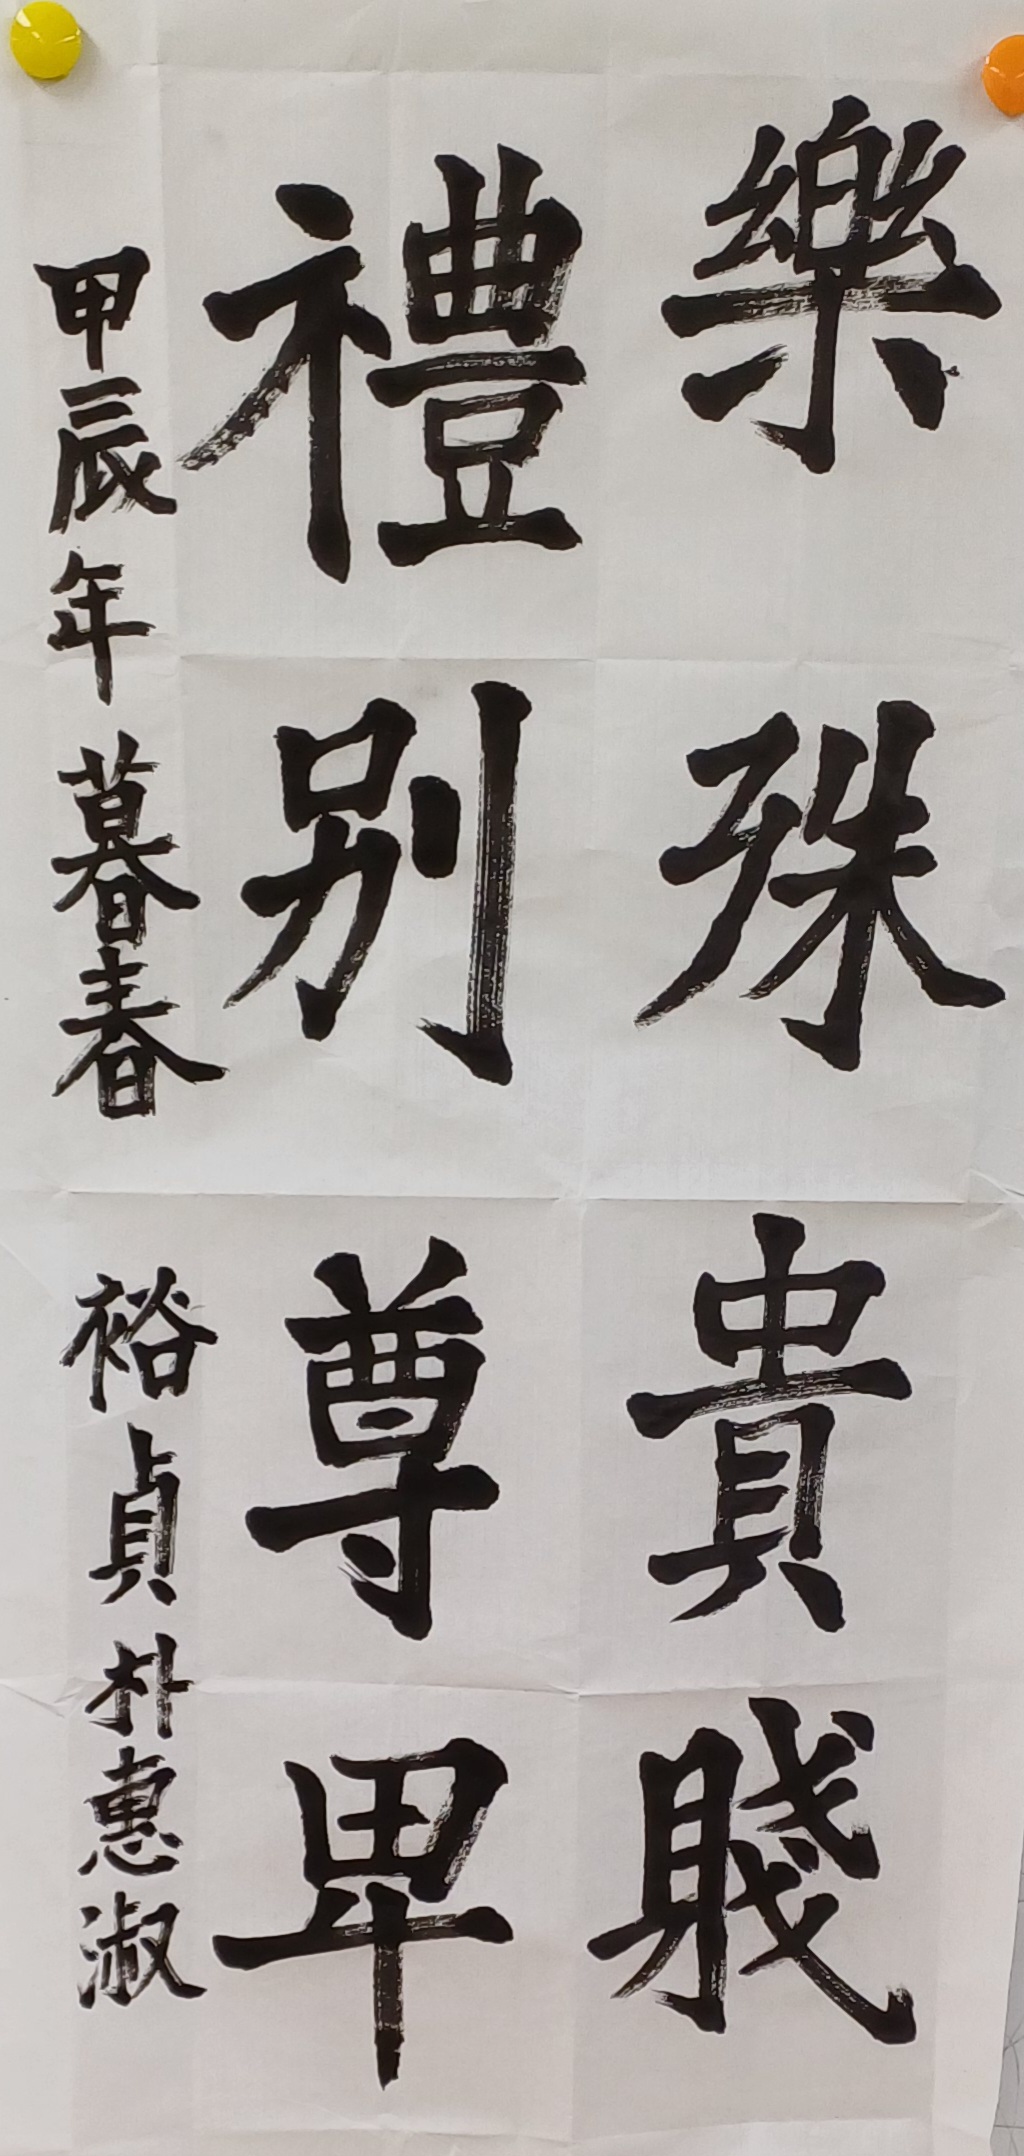 樂殊貴賤
禮別尊卑
甲辰年暮春 裕貞朴惠淑